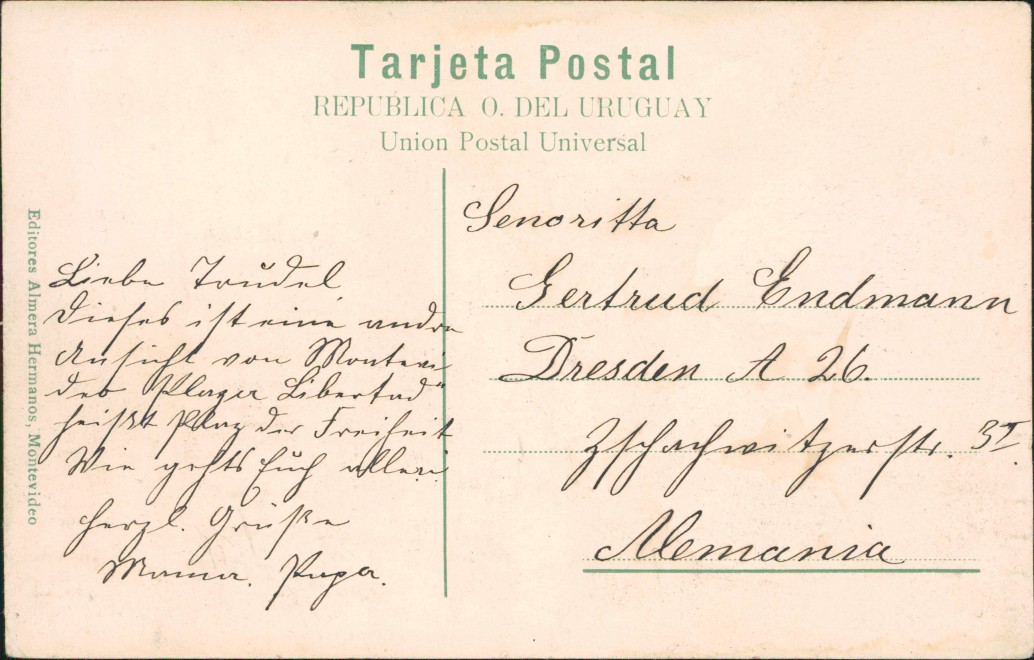 Tarjeta Postal
REPUBLICA O. DEL URUGUAY
Union Postal Universal
Editores Almera Hermanos, Montevideo
Liebe Trudel
dieses ist eine andre
Ansicht von Montevi
deo Plaza Libertad"
heißt Plaz der Freiheit.
Wie gehts Euch allen
herzl. Grüße
Mama. Papa.
Senoritta
Gertrud Endmann
Dresden A 26.
Zschachwitzerstr. 3I.
Alemania